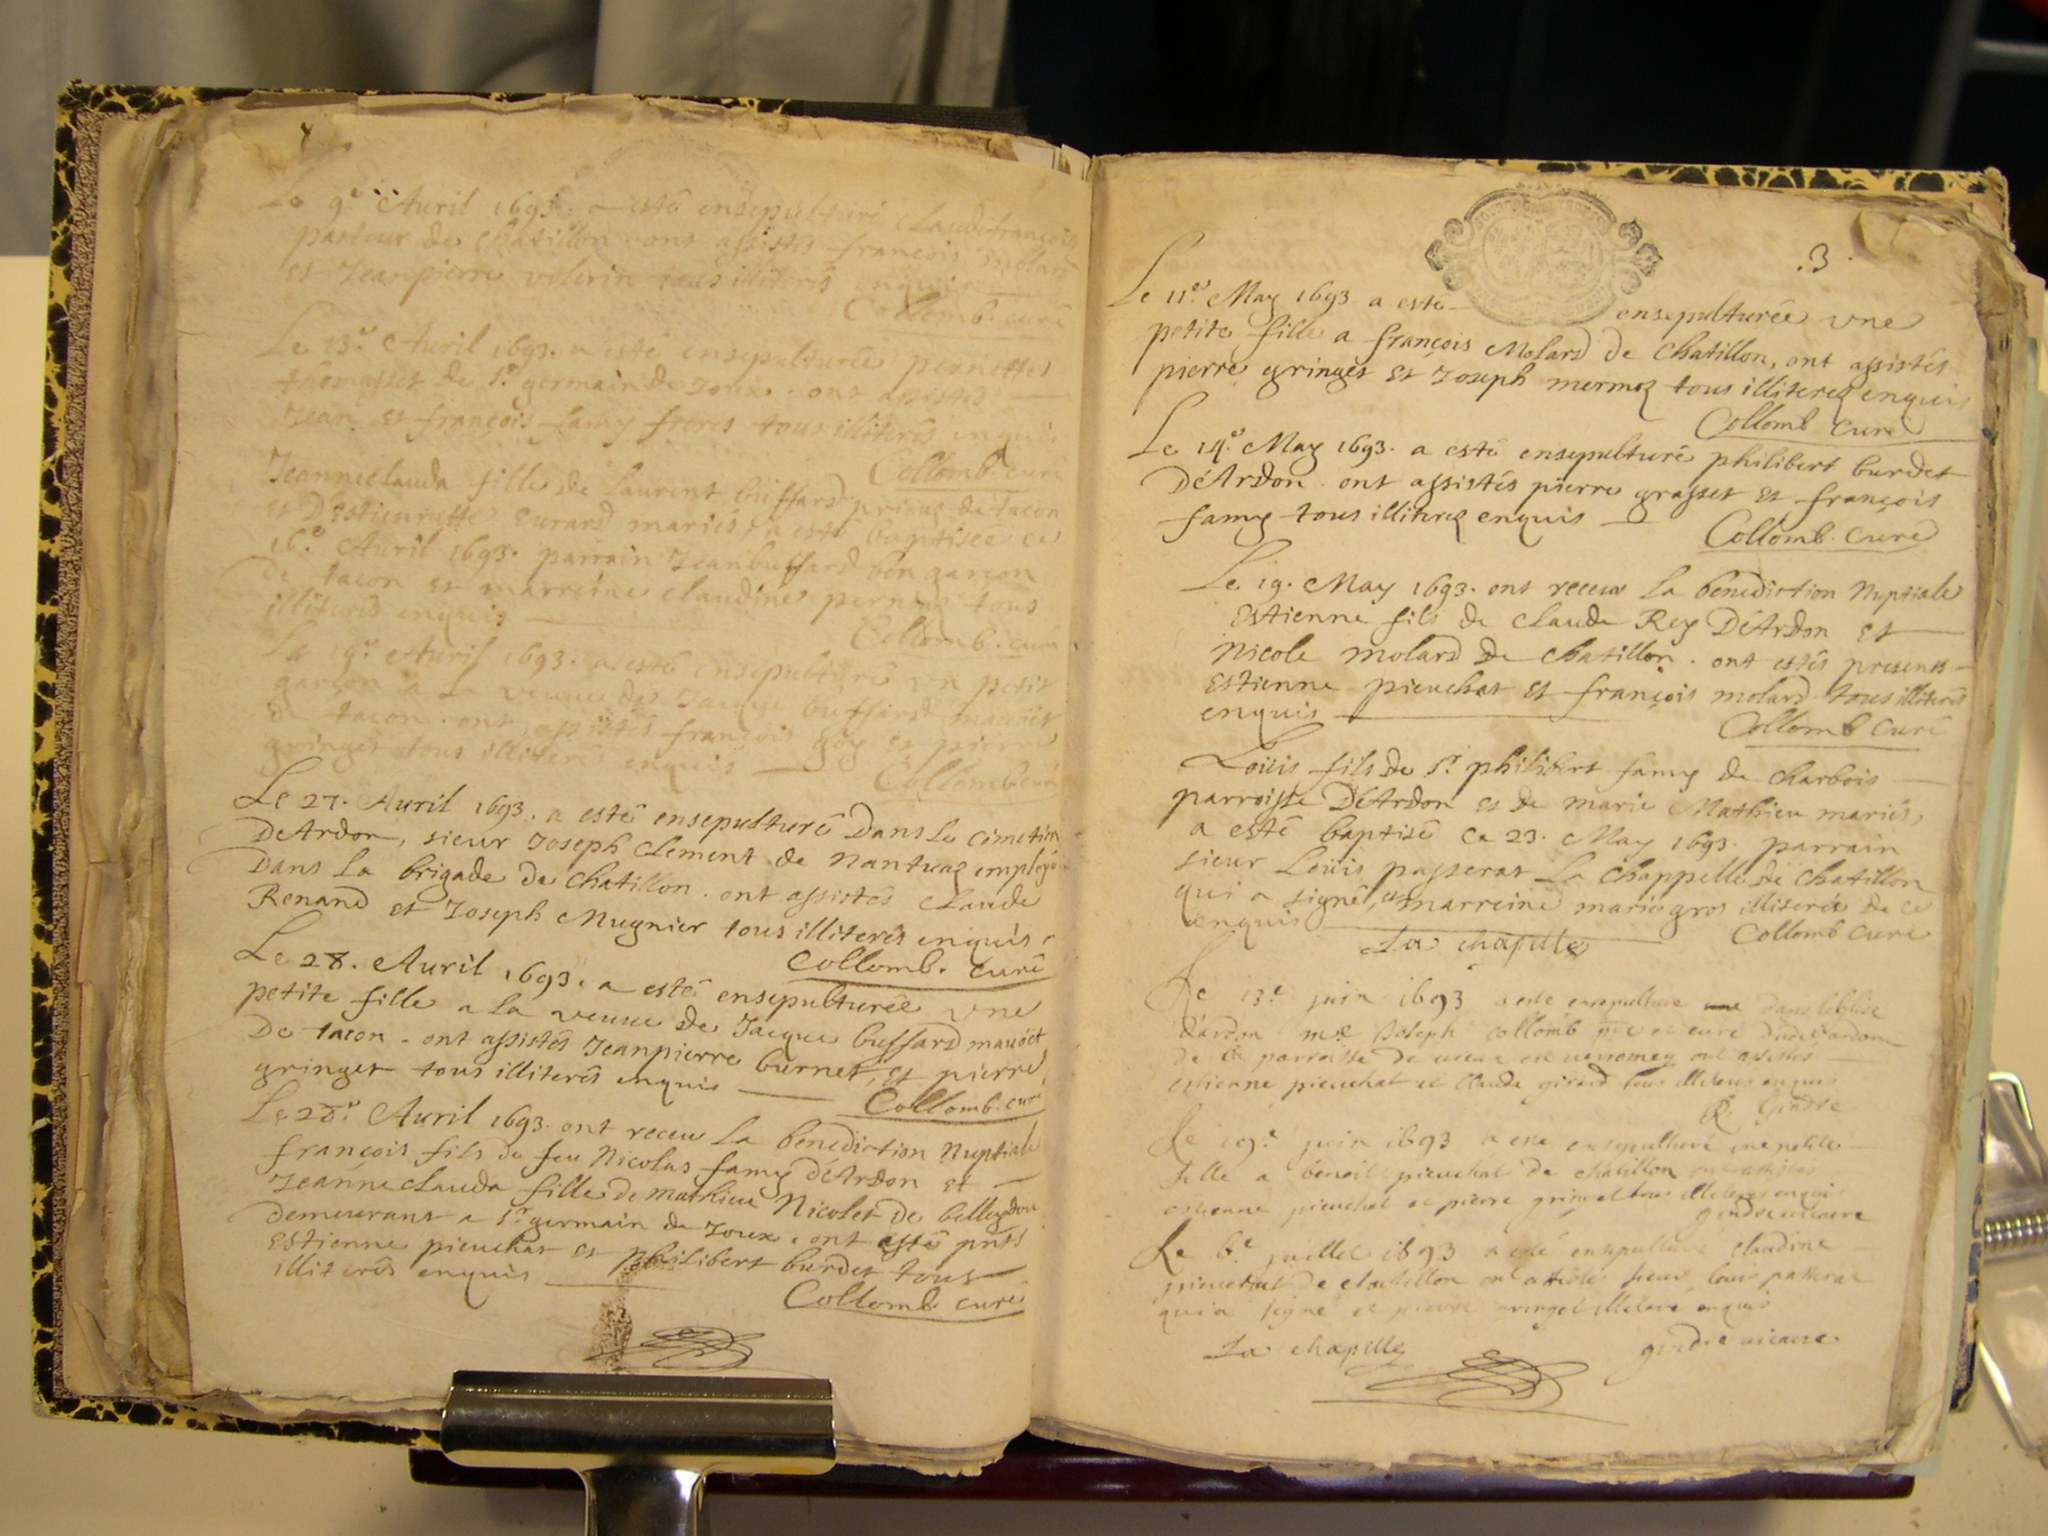 Le 9.e Auril 1693. a esté ensepulturé Claudefrançois
pasteur de Chatillon ont assistés françois molard
et Jeanpierre volerin tous illiterés enquis
Collomb. curé
Le 13.e Auril 1693. a esté ensepulturée pernette
thomasset de St. germain de Joux. ont assistés
Jean et françois famy freres tous illiterés enquis
Collomb curé
Jeanneclauda fille de Laurent buffard prieuz de tacon
et D'Estiennette Eurard mariés a esté baptisée ce
16.e Auril 1693. parrain Jean buffard bon garçon
de tacon et marreine claudine pernod tous
illiterés enquis
Collomb. curé
Le 19.e Auril 1693. a esté ensepulturé vn petit
garçon a la veuue de Jacque buffard mauöet
de tacon. ont assistés françois goy et pierre
gringet tous illiterés enquis
Collomb curé
Le 27. Auril 1693. a esté ensepulturé Dans le cimetiere
DeArdon, sieur Joseph Clement de Nantuaz employé
Dans la brigade de Chatillon. ont assistés Claude
Renand et Joseph Mugnier tous illiterés enquis.
Collomb. curé
Le 28. Auril 1693. a esté ensepulturée vne
petite fille a la veuue de Jacque buffard mauöet
De tacon. ont assistés Jeanpierre burnet, et pierre
gringet tous illiterés enquis
Collomb. curé
Le 28.e Auril 1693. ont receu la benediction Nuptiale
françois fils de feu Nicolas famy déArdon et
Jeanneclauda fille de mathieu Nicolet de belleydoux
demeurant a St. germain de Joux. ont esté pnts
Estienne pieuchat et philibert burdet tous
illiterés enquis
Collomb curé
.3.
Le 11.e May 1693. a esté ensepulturée vne
petite fille a françois Molard de Chatillon, ont assistés
pierre gringet et Joseph mermoz tous illiterez enquis
Collomb curé
Le 14.e May 1693. a esté ensepulturé philibert burdet
DéArdon. ont assistés pierre grasset et françois
famy tous illiterez enquis
Collomb. curé
Le 19. May 1693. ont receux la benediction Nuptiale
Estienne fils de Claude Rey DéArdon et
Nicole molard de Chatillon. ont estés presents
Estienne pieuchat et françois molard tous illiterés
enquis
Collomb curé
Loüis fils de Sr. philibert famy de Charbois
parroisse DéArdon et de marie Mathieu mariés,
a esté baptisé ce 23. May 1693. parrain
sieur Loüis passerat La Chappelle de Chatillon
qui a signé, et marreine marie gros illiterée de ce
enquis
Collomb curé
La chapelle
Le 13.e juin 1693 a esté ensepulture dans leglise
dardon mre Joseph Collomb pre et curé dudit ardon
de la parroisse de en ueromey ont assistés
estienne pieuchat et Claude girard tous illiteres enquis
Gindre
Le 19.e juin 1693 a esté ensepulture une petite
fille a benoit pieuchat de chatillon ont assistés
estienne pieuchat et pierre gringet tous illiteres enquis
gindre uicaire
Le 6.e juillet 1693 a esté ensepulture claudine
pieuchat de chatillon ont assistés sieur louis passerat
qui a signé et pierre gringet illiteré enquis
La chapelle gindre uicaire.